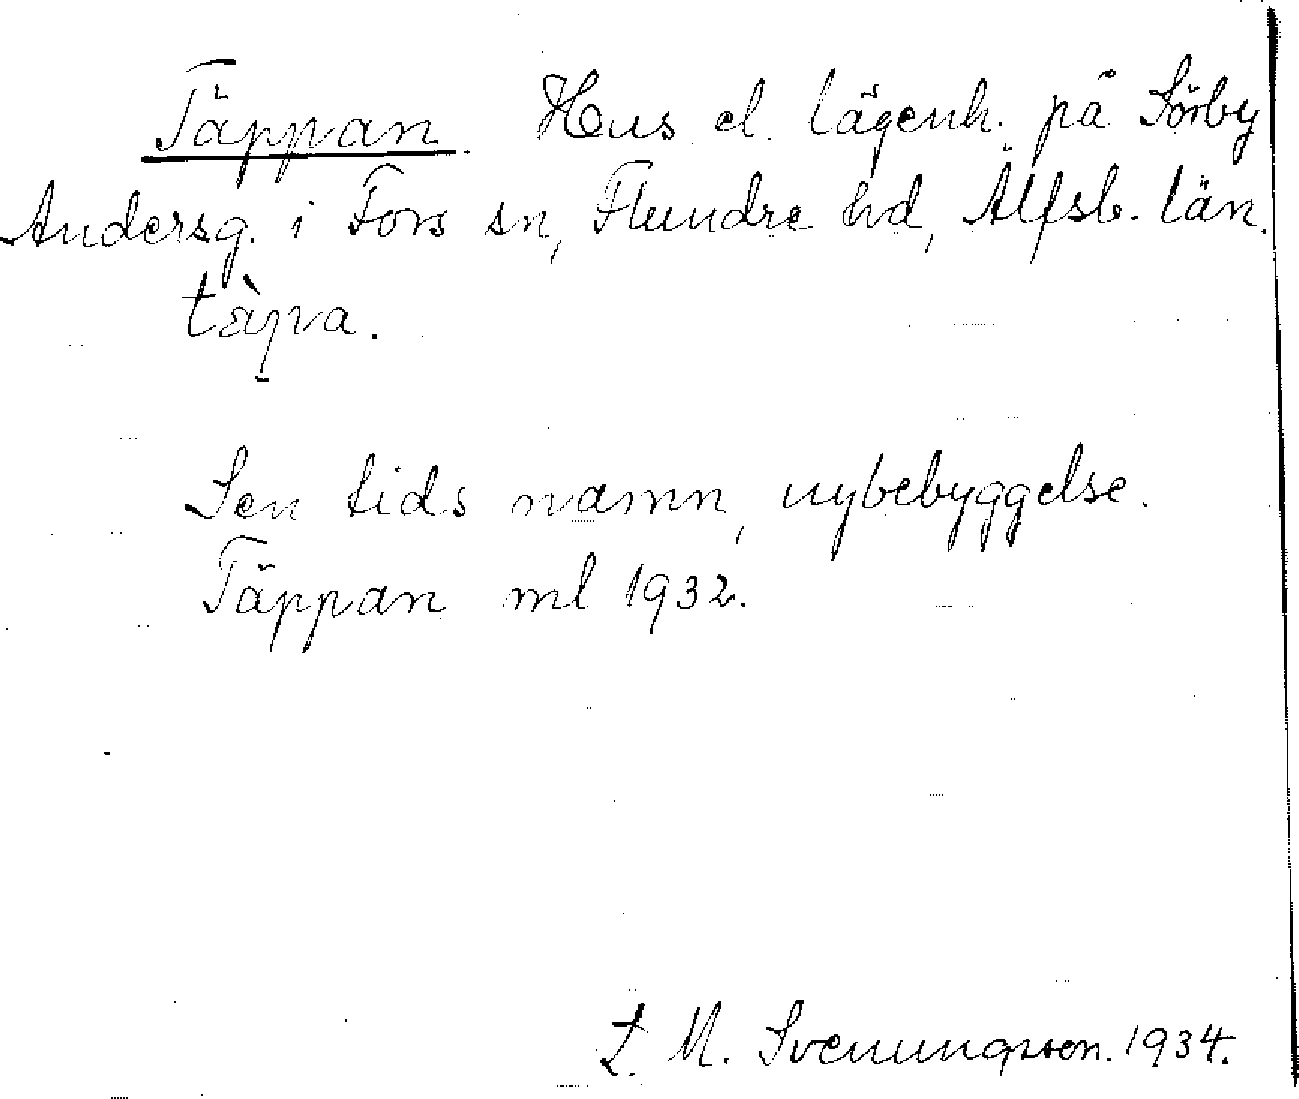 Täppan. Hus el. lägenh. på Sörby
Andersg. i Fors sn, Flundre hd, Älfsb. län.
tæ̀p̠a.
Sen tids namn, nybebyggelse.
Täppan ml 1932.
L. M. Svenungsson. 1934.